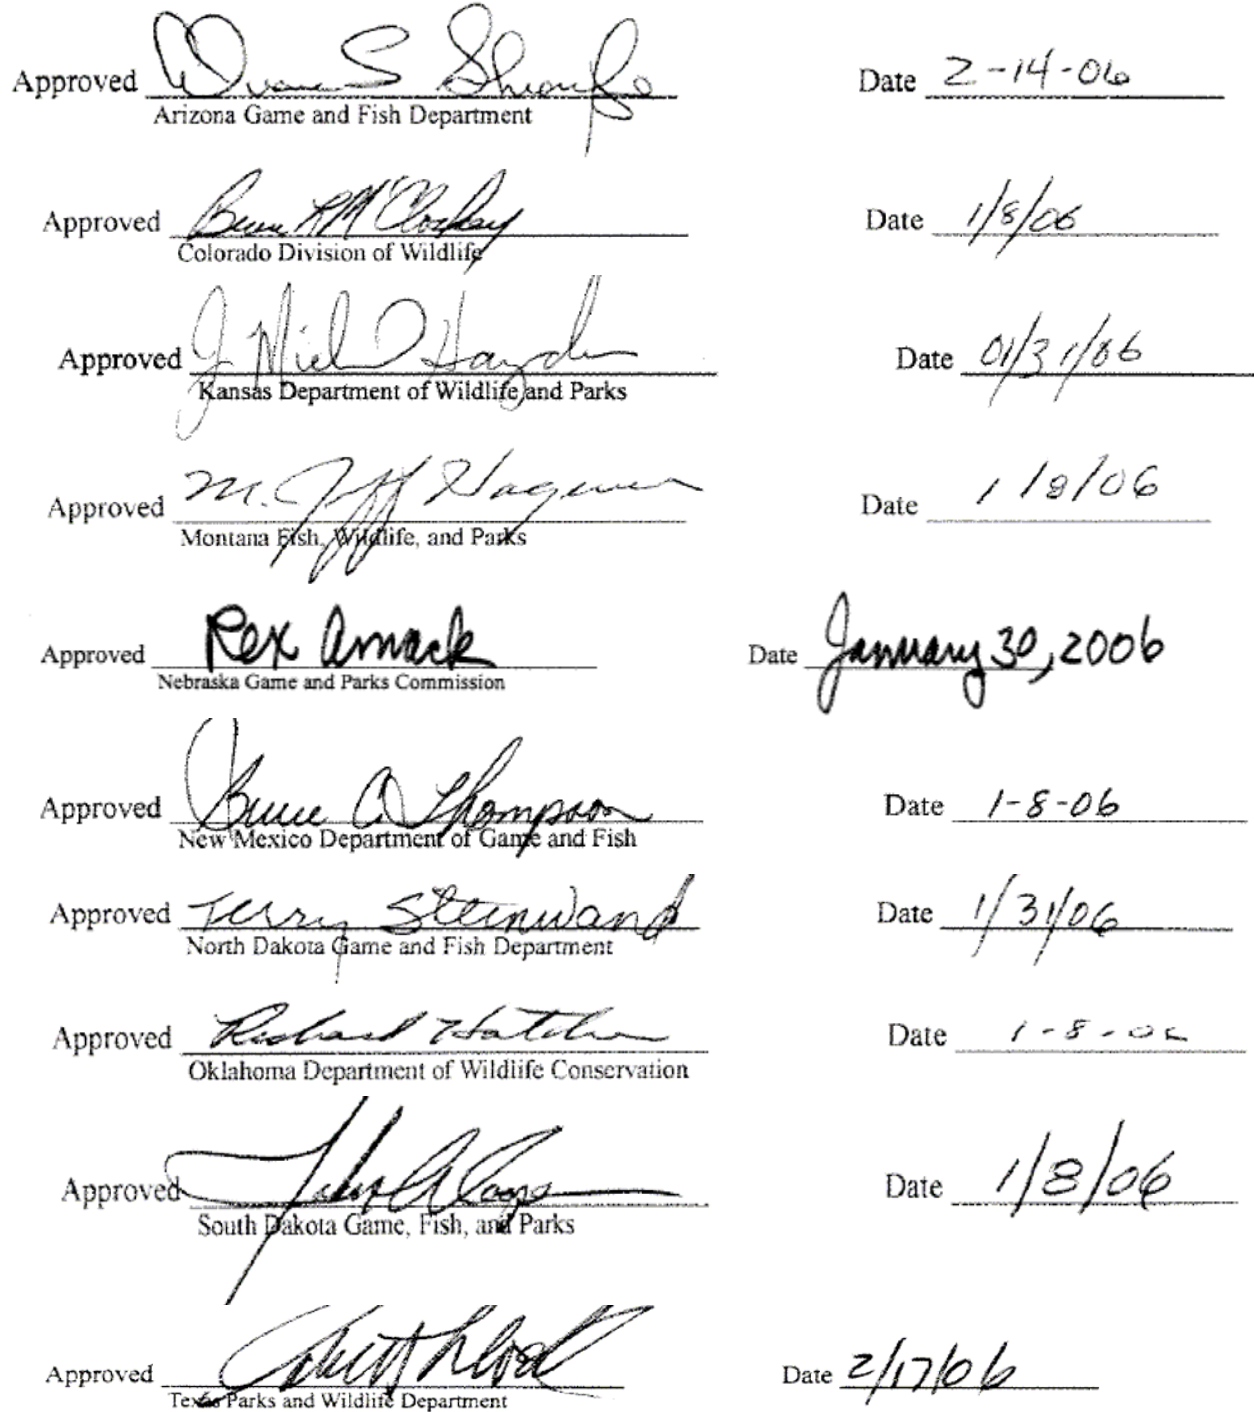 Approved Duane L Shroufe Date 2-14-06
Arizona Game and Fish Department
Approved Bruce McCloskey Date 1/8/06
Colorado Division of Wildlife
Approved J Michael Hayden Date 01/31/06
Kansas Department of Wildlife and Parks
Approved M. Jeff Hagener Date 1/8/06
Montana Fish, Wildlife, and Parks
Approved Rex Amack Date January 30, 2006
Nebraska Game and Parks Commission
Approved Bruce C Thompson Date 1-8-06
New Mexico Department of Game and Fish
Approved Terry Steinwand Date 1/31/06
North Dakota Game and Fish Department
Approved Richard Hatcher Date 1-8-06
Oklahoma Department of Wildlife Conservation
Approved John Date 1/8/06
South Dakota Game, Fish, and Parks
Approved Date 2/17/06
Texas Parks and Wildlife Department